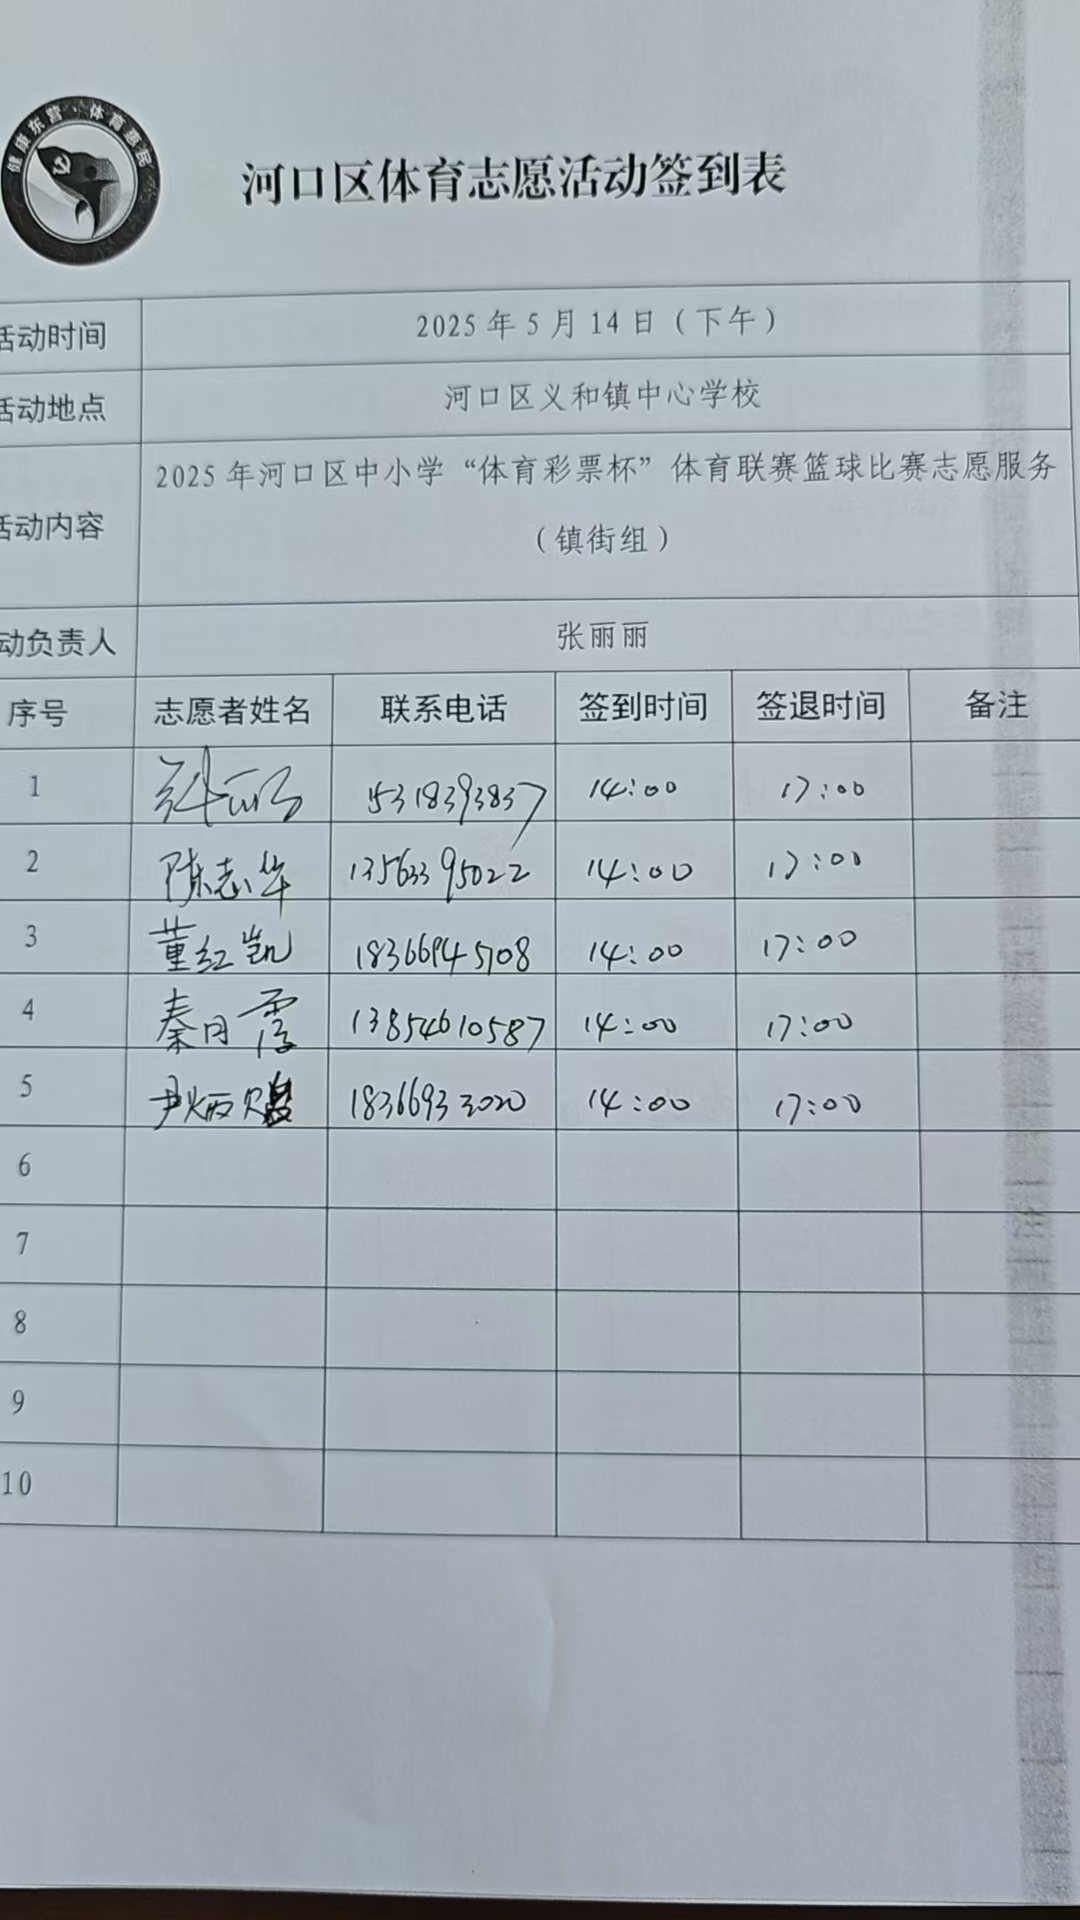 健康东营·体育惠民
河口区体育志愿活动签到表
活动时间 2025年5月14日（下午）
活动地点 河口区义和镇中心学校
活动内容 2025年河口区中小学“体育彩票杯”体育联赛篮球比赛志愿服务
（镇街组）
动负责人 张丽丽
序号 志愿者姓名 联系电话 签到时间 签退时间 备注
1 15318393837 14:00 17:00
2 陈志华 13563395022 14:00 17:00
3 董红凯 18366945708 14:00 17:00
4 秦月霞 13854610587 14:00 17:00
5 尹炳 18366933020 14:00 17:00
6
7
8
9
10